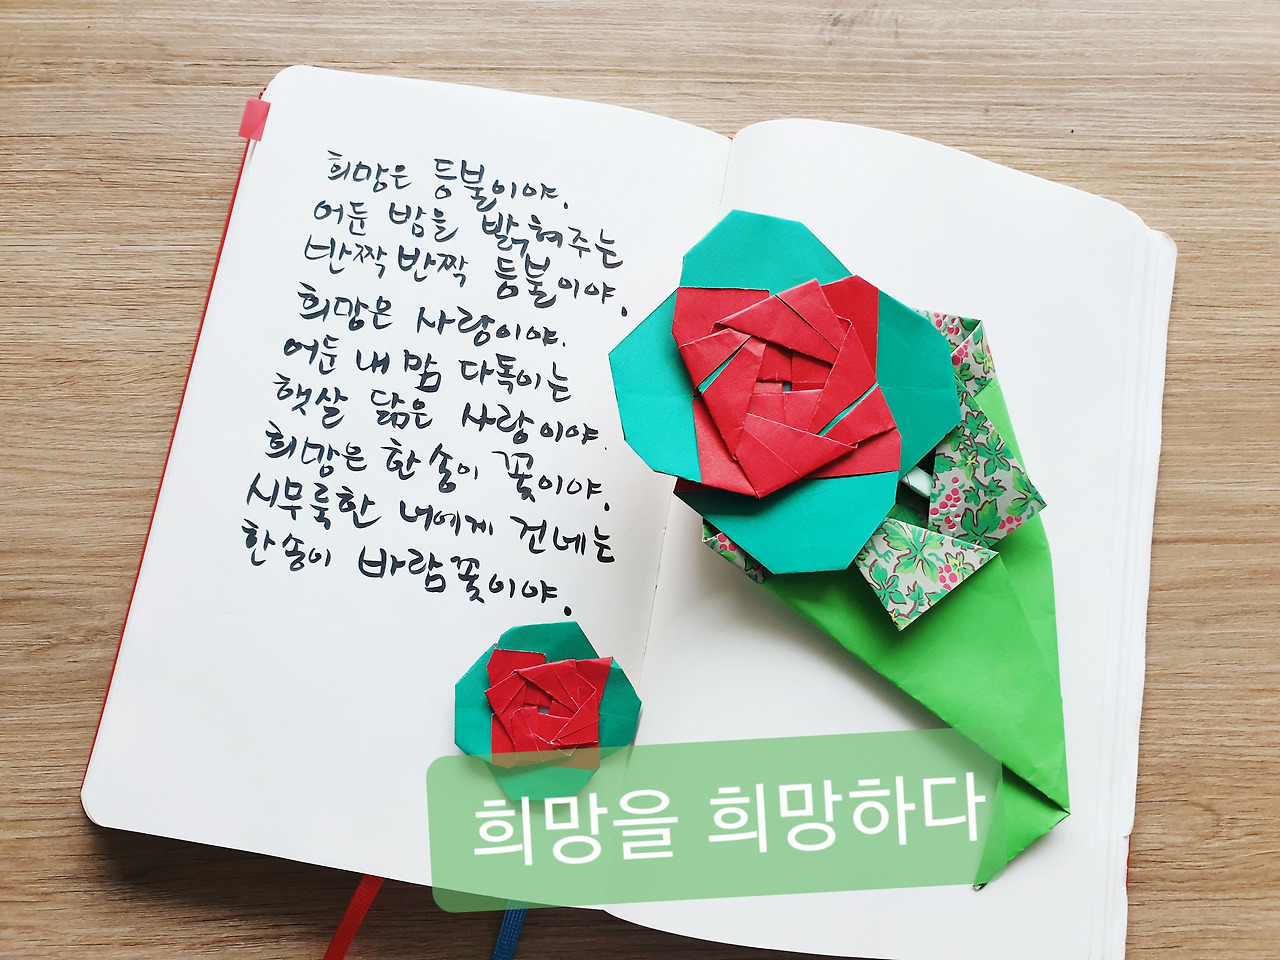 희망은 등불이야.
어둔 밤을 밝혀주는
반짝반짝 등불이야.
희망은 사랑이야.
어둔 내 맘 다독이는
햇살 닮은 사랑이야.
희망은 한 송이 꽃이야.
시무룩한 너에게 건네는
한 송이 바람꽃이야.
희망을 희망하다